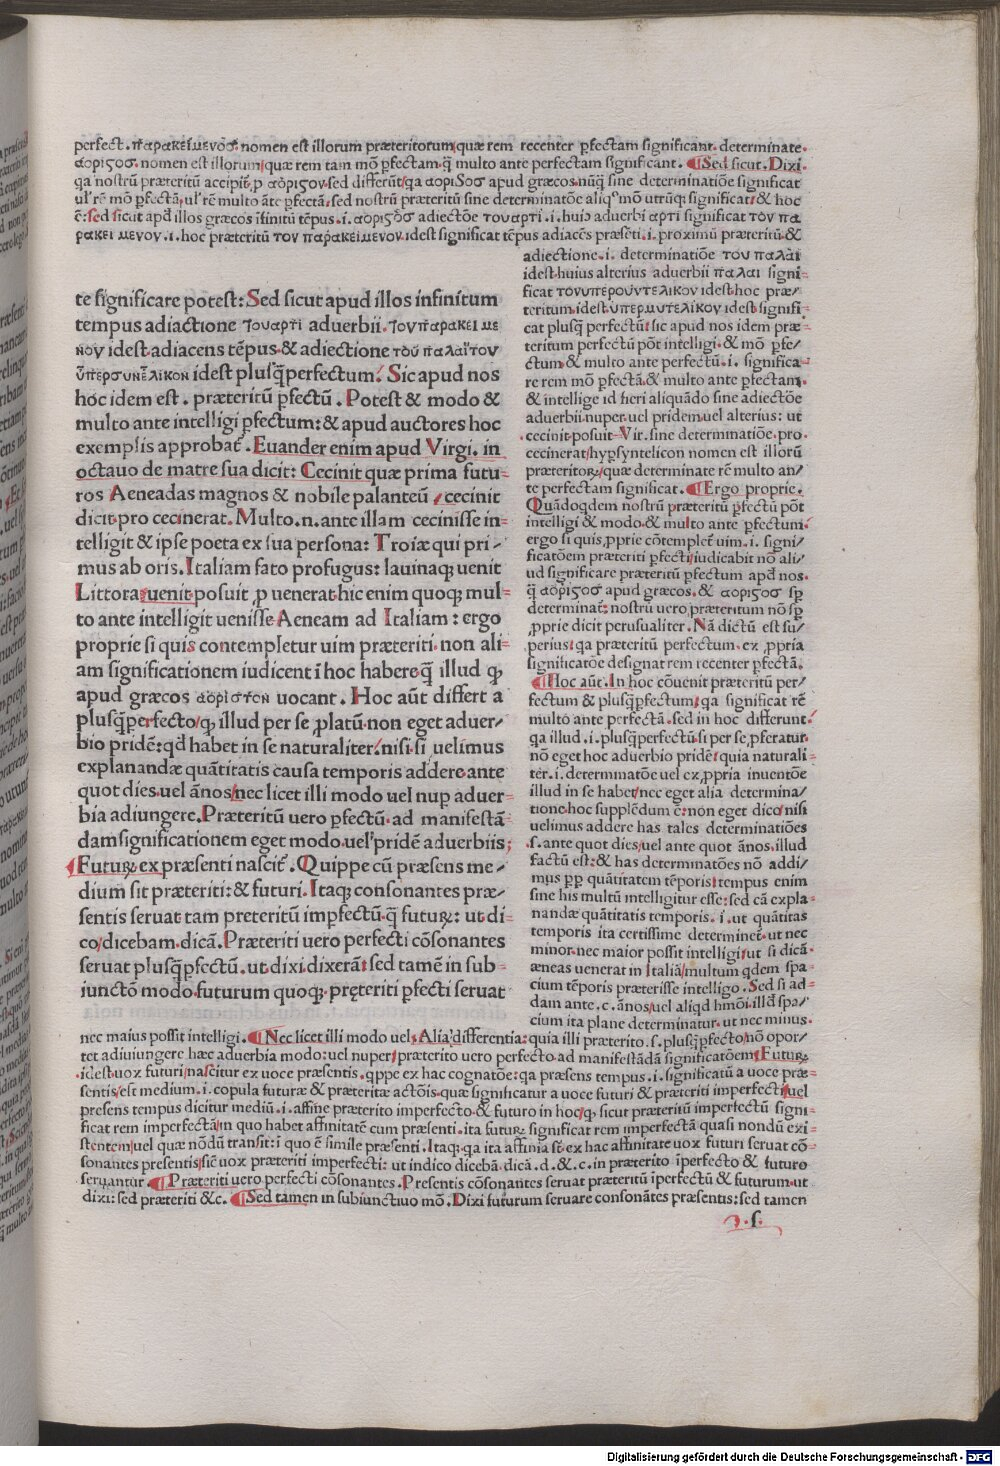 perfect. παρακείμενος. nomen est illorum præteritorum quæ rem recenter p̄fectam significant. determinate.
αοριςος. nomen est illorum quæ rem tam mō p̄fectam q̄ multo ante perfectam significant. Sed sicut. Dixi.
qa nostrū præteritū accipit̄ p αοριςον. sed differūt qa αοριςοσ apud græcos. nūq̄ sine determinatiōe significat
ul' rē mō p̄fectā ul' rē multo āte p̄fectā. sed nostrū præteritū sine determinatōe aliqn̄ mō utrūq; significat & hoc
ē: sed sicut apd illos græcos ifinitū tēpus .i. αοριςοσ adiectōe τουαρτι .i. huiꝰ aduerbi αρτι significat τον πα
ρακει μενον .i. hoc præteritū τον παρακειμενον idest significat tēpus adiacēs præsēti .i. proximū præteritū &
te significare potest: Sed sicut apud illos infinitum
tempus adiactione τουαρτι aduerbii. τονπαρακει με
νον idest adiacens tēpus & adiectione τοῦ παλαι τον
ὑπερσυνελικον idest plusq̄perfectum. Sic apud nos
hoc idem est. præteritū p̄fectū. Potest & modo &
multo ante intelligi p̄fectum: & apud auctores hoc
exemplis approbat̄. Euander enim apud Virgi. in
octauo de matre sua dicit: Cecinit quæ prima futu
ros Aeneadas magnos & nobile palanteū cecinit
dicit pro cecinerat. Multo .n. ante illam cecinisse in-
telligit & ipse poeta ex sua persona: Troiæ qui pri-
mus ab oris. Italiam fato profugus: lauinaq; uenit
Littora uenit posuit p uenerat hic enim quoq; mul-
to ante intelligit uenisse Aeneam ad Italiam: ergo
proprie si quis contempletur uim præteriti. non ali-
am significationem iudicent ī hoc habere q̄ illud q;
apud græcos αοριστον uocant. Hoc aūt differt a
plusq̄perfecto q; illud per se platū non eget aduer/
bio pridē: qd habet in se naturaliter. nisi si uelimus
explanandæ quātitatis causa temporis addere ante
quot dies uel ānos nec licet illi modo uel nup aduer-
bia adiungere. Præteritū uero p̄fectū. ad manifestā
dam significationem eget modo uel pridē aduerbiis:
Futurꝝ ex præsenti nascit̄. Quippe cū præsens me/
dium sit præteriti: & futuri. Itaq; consonantes præ-
sentis seruat tam preteritū imp̄fectū q̄ futurꝝ: ut di-
co dicebam dicā. Præteriti uero perfecti cōsonantes
seruat plusq̄p̄fectū. ut dixi dixerā: sed tamē in sub-
iunctō modo futurum quoq; pręteriti p̄fecti seruat
adiectione .i. determinatiōe του παλαι
idest huius alterius aduerbii παλαι signi-
ficat τονυπερουντελικον idest hoc præ/
teritum idest υπερμυτελικον idest signifi-
cat plusq̄ perfectū: sic apud nos idem præ-
teritum perfectū pōt intelligi & mō pfe/
ctum & multo ante perfectū .i. significa-
re rem mō p̄fectā & multo ante p̄fectam.
& intellige id fieri aliquādo sine adiectōe
aduerbii nuper uel pridem uel alterius: ut
cecinit posuit Vir. sine determinatiōe pro
cecinerat hyp̄syntelicon nomen est illorū
præteritoꝝ quæ determinate rē multo an/
te perfectam significat. Ergo proprie.
Quādoqdem nostrū præteritū p̄fectū pōt
intelligi & modo & multo ante p̄fectum.
ergo si quis pprie cōtemplet̄ uim .i. signi/
ficatōem præteriti p̄fecti iudicabit nō ali/
ud significare præteritū p̄fectum apd nos
q̄ αοριςοσ apud græcos. & αοριςοσ sp
determinat: nostrū uero præteritum nō sp
pprie dicit perusualiter. Nā dictū est su/
perius qa præteritū perfectum ex ppria
significatōe designat rem recenter p̄fectā.
Hoc aūt. In hoc cōuenit præteritū per/
fectum & plusq̄pfectum qa significat rē
multo ante perfectā. sed in hoc differunt.
qa illud .i. plusq̄perfectū si per se pferatur
nō eget hoc aduerbio pridē quia naturali-
ter .i. determinatōe uel ex ppria inuentōe
illud in se habet nec eget alia determina/
tione hoc supplēdum ē: non eget dico nisi
uelimus addere has tales determinatiōes
.s. ante quot dies uel ante quot ānos. illud
factū est: & has determinatōes nō addi/
mus pp quātitatem tēporis tempus enim
sine his multū intelligitur esse: sed cā expla-
nandæ quātitatis temporis .i. ut quātitas
temporis ita certissime determinet̄ ut nec
minor nec maior possit intelligi ut si dicā.
æneas uenerat in italiā multum qdem spa-
cium tēporis præterisse intelligo. Sed si ad-
dam ante .c. ānos uel aliqd hmōi. illd spa/
cium ita plane determinatur. ut nec minus
nec maius possit intelligi. Nec licet illi modo uel. Alia differentia: quia illi præterito .s. plusq̄pfecto nō opor-
tet adiuiungere hæc aduerbia modo: uel nuper præterito uero perfecto ad manifestādā significatōem Futurꝝ
idest uox futuri nascitur ex uoce præsentis. qppe ex hac cognatōe: qa præsens tempus .i. significatū a uoce præ-
sentis est medium .i. copula futuræ & præteritæ actōis quæ significatur a uoce futuri & præteriti imperfecti uel
presens tempus dicitur mediū .i. affine præterito imperfecto & futuro in hoc q; sicut præteritū imperfectū signi-
ficat rem imperfectā in quo habet affinitatē cum præsenti. ita futurꝝ significat rem imperfectā quasi nondū exi-
stentem uel quæ nōdū transit: i quo ē simile præsenti. Itaq; qa ita affinia sē ex hac affinitate uox futuri seruat cō-
sonantes presentis sic̄ uox præteriti imperfecti: ut indico dicebā dicā .d. & .c. in præterito īperfecto & futuro
seruantur. Præteriti uero perfecti cōsonantes. Presentis cōsonantes seruat præteritū īperfectū & futurum. ut
dixi: sed præteriti &c. Sed tamen in subiunctiuo mō. Dixi futurum seruare consonātes præsentis: sed tamen
.s.
Digitalisierung gefördert durch die Deutsche Forschungsgemeinschaft - DFG